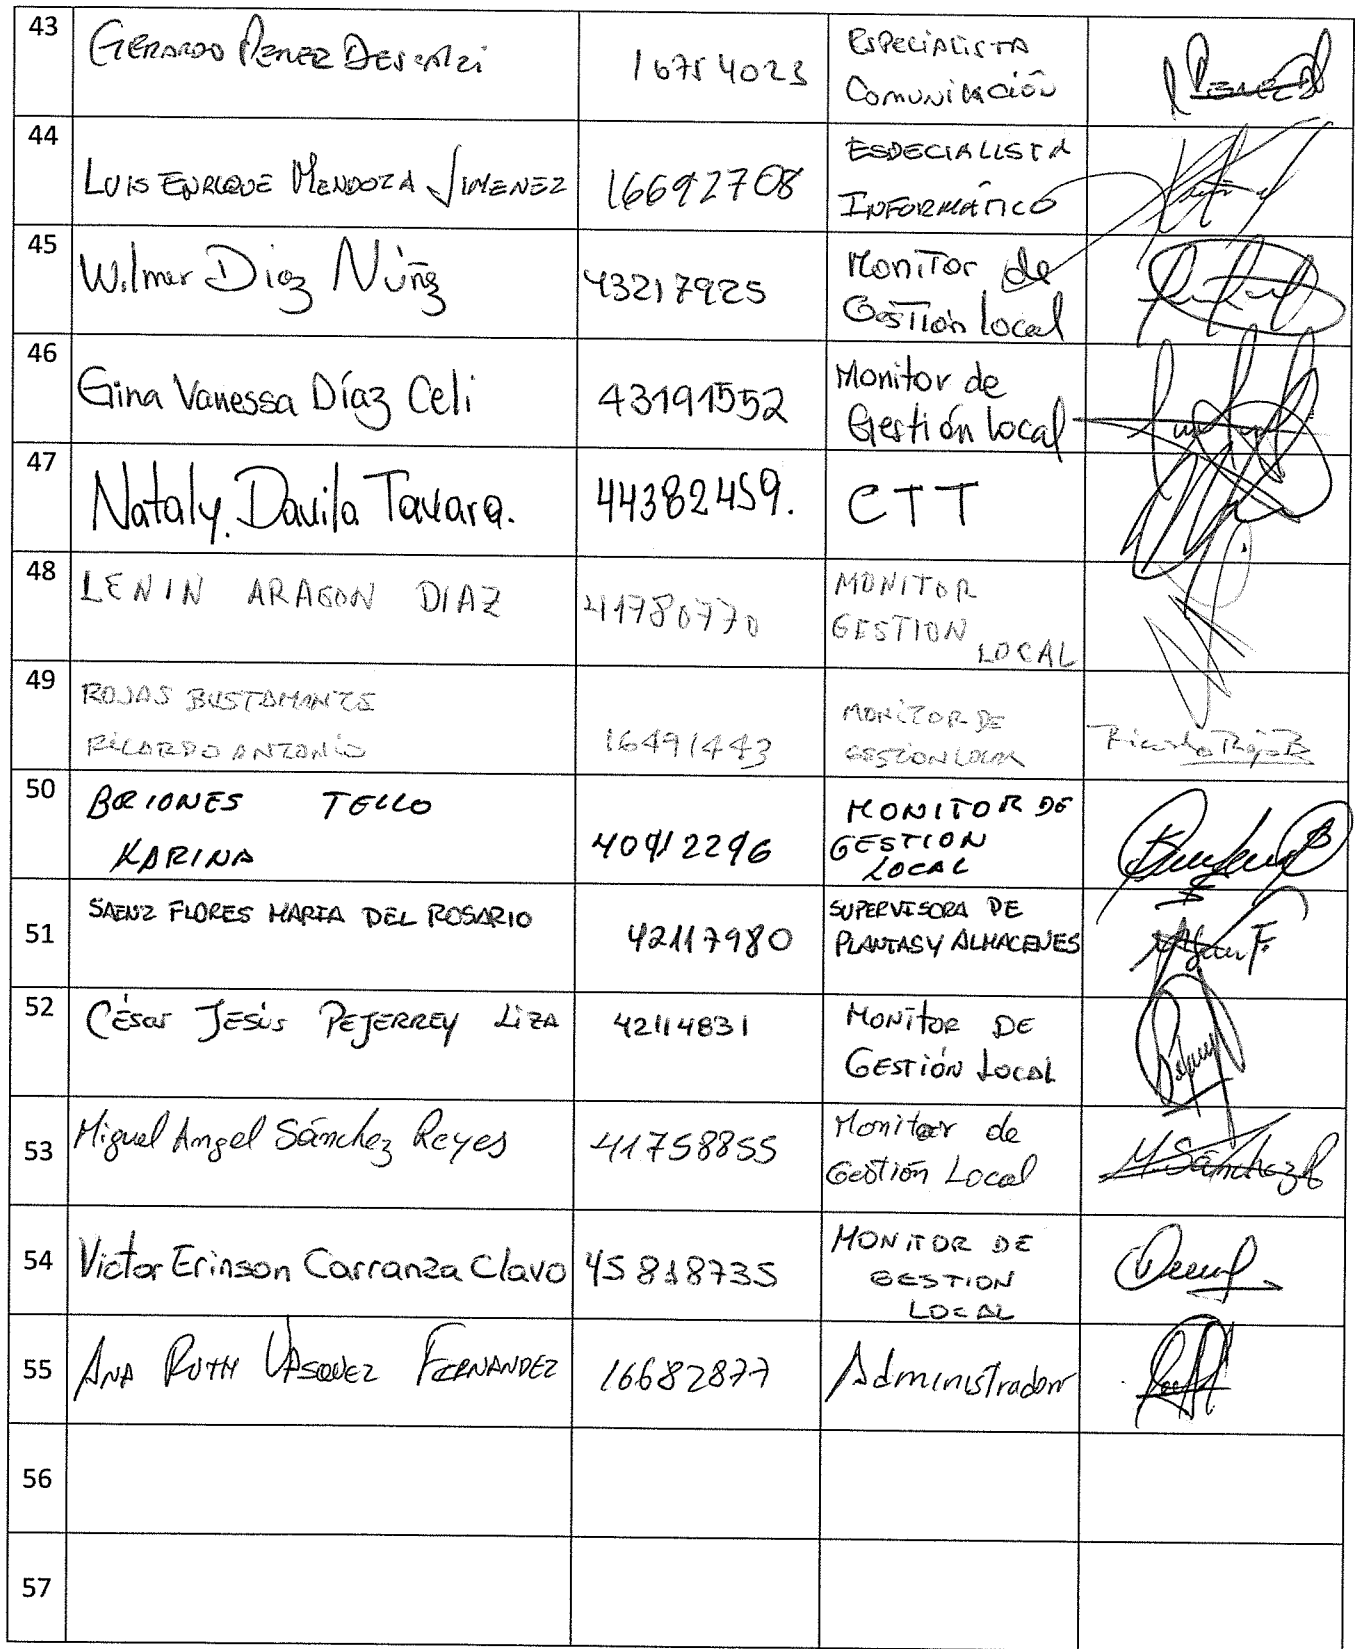 43 GERARDO PEREZ DESCALZI 16754023 ESPECIALISTA
COMUNICACIÓN
44 LUIS ENRIQUE MENDOZA JIMENEZ 16692708 ESPECIALISTA
INFORMÁTICO
45 Wilmer Díaz Núñz 43217925 Monitor de
Gestión local
46 Gina Vanessa Díaz Celi 43191552 Monitor de
Gestión local
47 Nataly. Davila Tavara. 44382459. CTT
48 LENIN ARAGON DIAZ 41780770 MONITOR
GESTION
LOCAL
49 ROJAS BUSTAMANTE
RICARDO ANTONIO 16491443 MONITOR DE
GESTION LOCAL
Ricardo Rojas B
50 BRIONES TELLO
KARINA 40912296 MONITOR DE
GESTION
LOCAL
51 SAENZ FLORES MARIA DEL ROSARIO 42117980 SUPERVISORA DE
PLANTAS Y ALMACENES
52 César JESÚS PEJERREY LIZA 42114831 MONITOR DE
GESTIÓN LOCAL
53 Miguel Angel Sánchez Reyes 41758855 Monitor de
Gestión Local
M. Sánchez R
54 Victor Erinson Carranza Clavo 45818735 MONITOR DE
GESTION
LOCAL
55 ANA RUTH VÁSQUEZ FERNANDEZ 16682877 Administrador
56
57